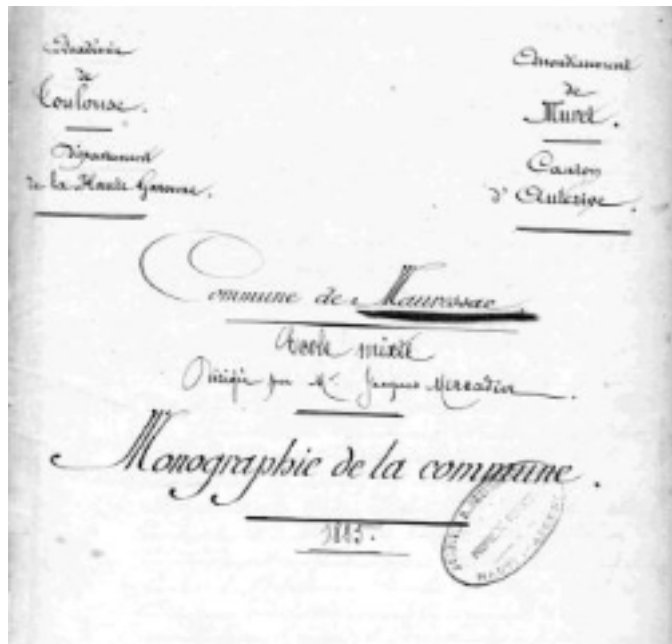 Académie
de
Toulouse.
Département
de la Haute Garonne.
Arrondissement
de
Muret.
Canton
d'Auterive.
Commune de Mauressac
Ecole mixte
Dirigée par Mr. Jacques Mercadier.
Monographie de la commune.
1885.